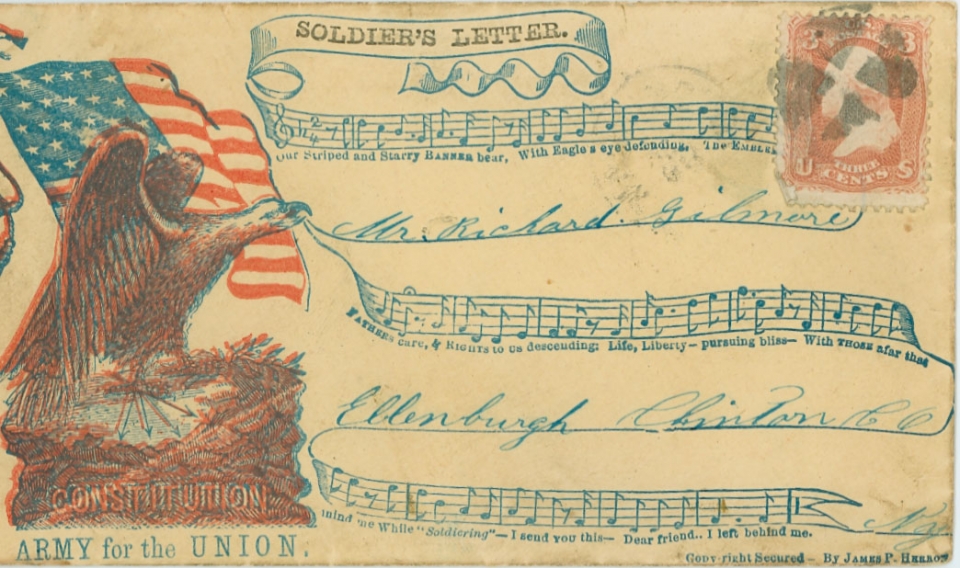 SOLDIER'S LETTER.
3 3
U THREE CENTS S
Our Striped and Starry BANNER bear, With Eagle s eye defending, The EMBLE
Mr. Richard Gilmore
FATHERS care, & RIGHTS to us descending: Life, Liberty— pursuing bliss— With THOSE afar that
Ellenburgh Clinton Co
mind me While "Soldiering"— I send you this— Dear friend.. I left behind me.
N.y
CONSTITUTION
ARMY for the UNION.
Copyright Secured— By JAMES P. HERRON